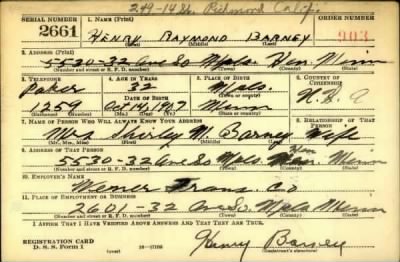 249-14 St. Richmond Calif.
SERIAL NUMBER 1. NAME (Print) ORDER NUMBER
2661 HENRY RAYMOND BARNEY 903
(First) (Middle) (Last)
2. ADDRESS (Print)
5530-32 Ave So Mpls. Hen. Minn
(Number and street or R. F. D. number) (Town) (County) (State)
3. TELEPHONE 4. AGE IN YEARS 5. PLACE OF BIRTH 6. COUNTRY OF CITIZENSHIP
Parker 32 Mpls.
DATE OF BIRTH (Town or county)
1259 Oct 14 1907 Minn U.S.A
(Exchange) (Number) (Mo.) (Day) (Yr.) (State or country)
7. NAME OF PERSON WHO WILL ALWAYS KNOW YOUR ADDRESS 8. RELATIONSHIP OF THAT PERSON
Mrs Shirley M. Barney Wife
(Mr., Mrs., Miss) (First) (Middle) (Last)
9. ADDRESS OF THAT PERSON
5530-32 Ave So Mpls Hen. Minn
(Number and street or R. F. D. number) (Town) (County) (State)
10. EMPLOYER'S NAME
Werner Trans. Co
11. PLACE OF EMPLOYMENT OR BUSINESS
2601-32 Ave So. Mpls Minn
(Number and street or R. F. D. number) (Town) (County) (State)
I AFFIRM THAT I HAVE VERIFIED ABOVE ANSWERS AND THAT THEY ARE TRUE.
REGISTRATION CARD
D. S. S. Form 1 Henry Barney
(Registrant's signature)